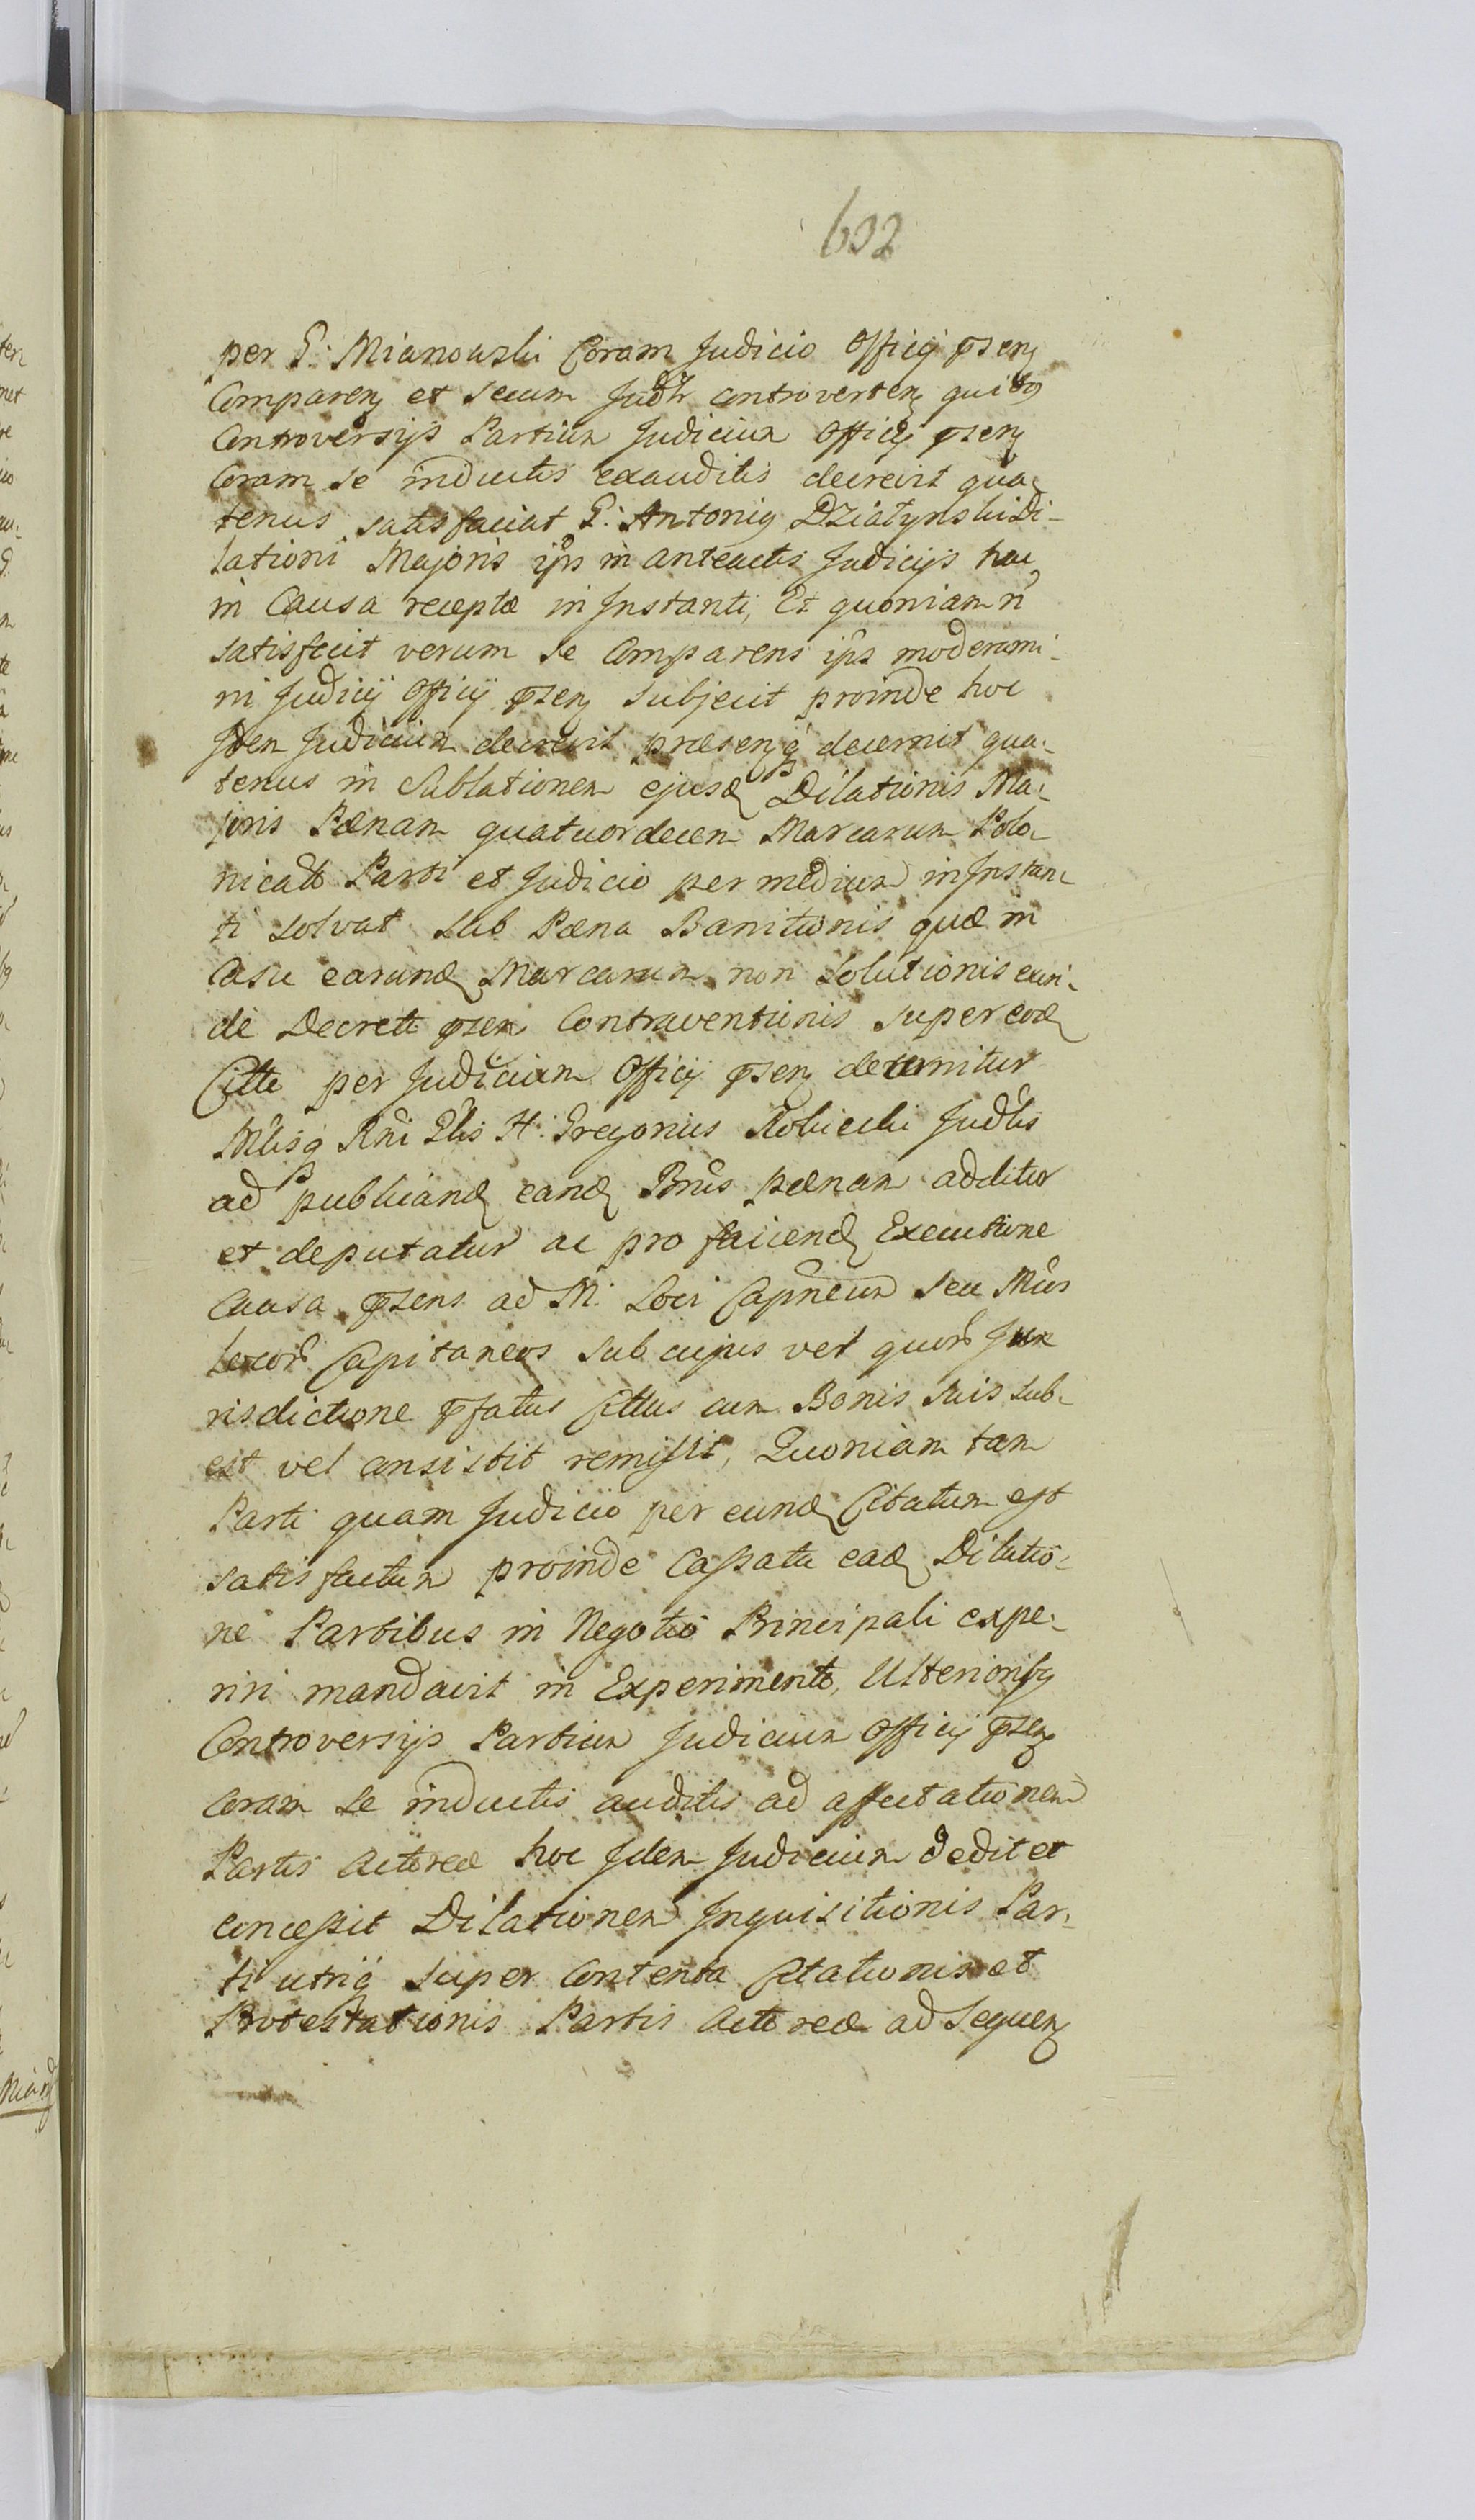 632
per G: Mianowski Coram Judicio Officij pṡenꝫ
Comparenꝫ et secum Judlr controvertenꝫ quibꝫ
Controversijs Partium Judicium Officij pṡenꝫ
Coram se inductis exauditis decrevit qua-
tenus satisfaciat G: Antonius Działynski Di-
lationi Majoris ips in anteactis Judicijs hac
in Causa receptæ in Instanti, Et quoniam ñ
satisfecit verum se Comparens ips moderami-
ni Judicij Officij pṡenꝫ subjecit proinde hoc
Idem Judicium decrevit præsenꝫq decernit qua-
tenus in sublationem ejusdꝫ Dilationis Ma-
joris Pænam quatuordecem Marcarum Polo-
nicalm Parti et Judicio per medium in Instan-
ti solvat sub Pæna Banitionis quæ in
Casu earundꝫ Marcarum non solutionis eun-
de Decreti pṡen Contraventionis super eodꝫ
Citto per Judicium Officij pṡenꝫ decernitur
Mlisq Rni Glis H: Gregorius Robiecki Judlis
ad publicandꝫ eandꝫ Bnis pænam additur
et deputatur ac pro faciendꝫ Executione
Causa pṡens ad M: Loci Capneum seu Mcos
locor Capitaneos sub cujus vel quor Ju-
risdictione pfatus Cittus cum Bonis suis sub-
est vel consistit remisit, Quoniam tam
Parti quam Judicio per eundꝫ Citatum est
satisfactum proinde Cassata eadꝫ Dilatio-
ne Partibus in Negotio Principali expe-
riri mandavit in Experimento, Ulteriorisbꝫ
Controversijs Partium Judicium Officij pṡenꝫ
Coram se inductis auditis ad affectationem
Partis Actoreæ hoc Idem Judicium dedit et
concessit Dilationem Inquisitionis Par-
ti utriq super Contenta Citationis et
Protestationis Partis Actoreæ ad sequenꝫ